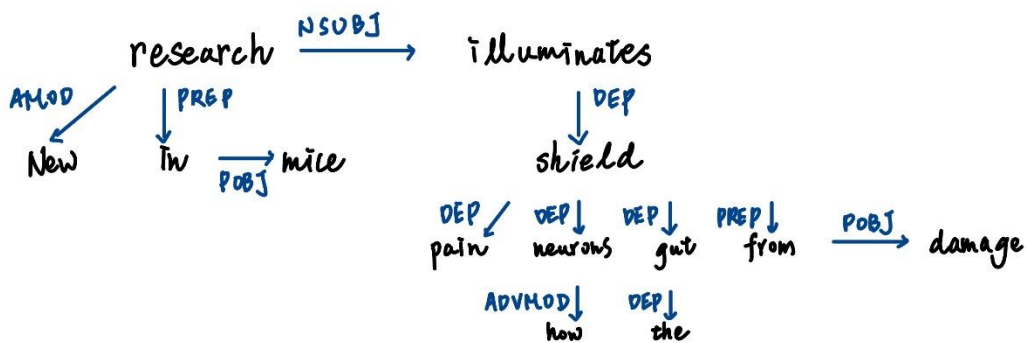 research NSUBJ illuminates
AMOD PREP DEP
New in POBJ mice shield
DEP DEP DEP PREP POBJ
pain neurons gut from damage
ADVMOD DEP
how the